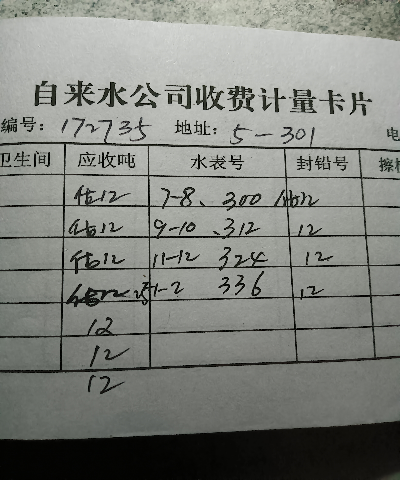 自来水公司收费计量卡片
编号: 172735 地址: 5-301 电
卫生间 应收吨 水表号 封铅号 擦
估12 7-8、300 12
估12 9-10、312 12
估12 11-12 324 12
估12 1-2 336 12
12
12
12